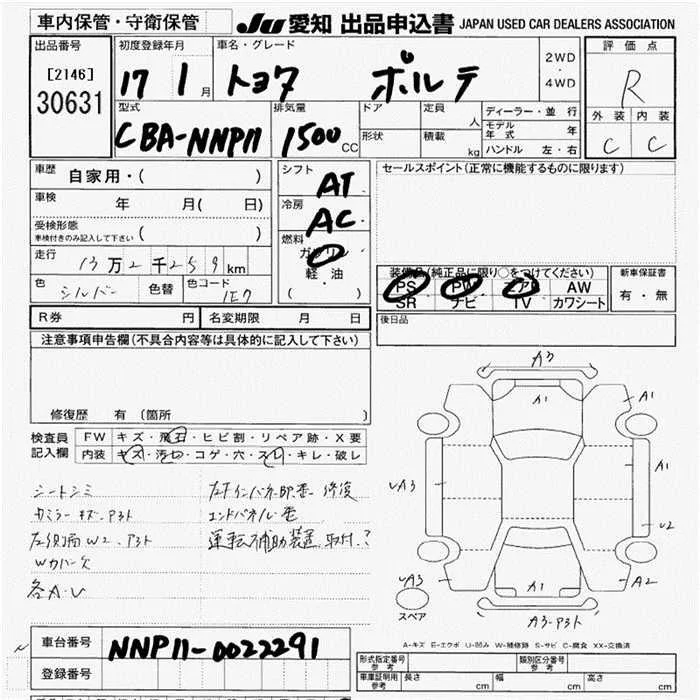 車内保管・守衛保管 JU 愛知 出品申込書 JAPAN USED CAR DEALERS ASSOCIATION
出品番号 初度登録年月 車名・グレード 2WD・4WD 評価点
[2146] 30631 17 1月 トヨタ ポルテ R
型式 排気量 ドア 定員 人 ディーラー・並行 外装 内装
CBA-NNP11 1500CC 形状 積載 kg モデル年式 年 C C
ハンドル 左・右
車歴 自家用・( ) シフト AT セールスポイント(正常に機能するものに限ります)
車検 年 月( 日) 冷房 AC
受検形態 車検付きのみ記入して下さい ( ) 燃料 ガソリン
走行 13万2千259km 軽・油 装備品(純正品に限り○をつけてください) 新車保証書
色 シルバー 色替 色コード 1E7 ( ) PS・PW・エアB AW 有・無
SR ナビ TV カワシート
R券 円 名変期限 月 日 後日品
注意事項申告欄(不具合内容等は具体的に記入して下さい)
修復歴 有 (箇所
検査員記入欄 FW キズ・飛石・ヒビ割・リペア跡・X要
内装 キズ・汚れ・コゲ・穴・スレ・キレ・破レ
シートシミ
カミラーキズ・P3ト エンドパネル歪
左後周W2・P3ト 運転補助装置 取付.?
Wカバー欠
各A・U
A3
A1
A1
A1
UA3
U2
UA3
A1
A2
スペア
A3・P3ト
A-キズ E-エクボ U-凹み W-補修跡 S-サビ C-腐食 XX-交換済
車台番号 NNP11-0022291
登録番号
形式指定番号 参考 類別区分番号 参考
車庫証明用 参考 長さ cm 幅 cm 高さ cm